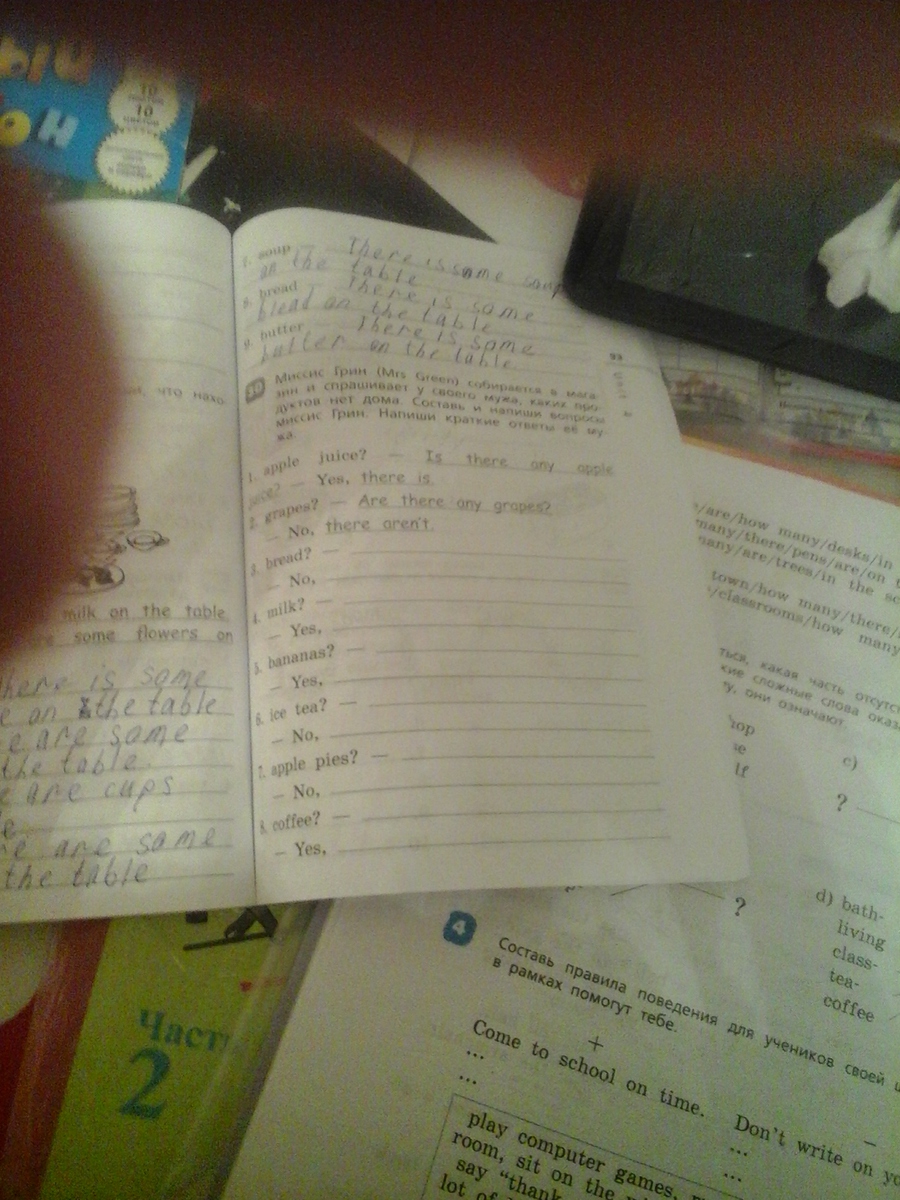 ый
он
10
10
цветов
, что нахо-
milk on the table
some flowers on
here is some
e on the table
e are some
the table.
e are cups
e.
re are some
the table
7. soup — There is some soup
on the table
8. bread — There is some
blead on the table
9. butter There is some
butter on the table.
93
Unit 4
10 Миссис Грин (Mrs Green) собирается в мага-
зин и спрашивает у своего мужа, каких про-
дуктов нет дома. Составь и напиши вопросы
миссис Грин. Напиши краткие ответы её му-
жа.
1. apple juice? — Is there any apple
juice? — Yes, there is.
2. grapes? — Are there any grapes?
— No, there aren't.
3. bread? —
— No,
4. milk? —
— Yes,
5. bananas? —
— Yes,
6. ice tea? —
— No,
7. apple pies? —
— No,
8. coffee? —
— Yes,
/are/how many/desks/in
many/there/pens/are/on
many/are/trees/in the
town/how many/there/
/classrooms/how many
какая часть
сложные слова
они означают.
c)
?
?
d) bath-
living
class-
tea-
coffee
Часть
2
4 Составь правила поведения для учеников своей
в рамках помогут тебе.
+
–
Come to school on time. Don't write on
...
...
...
...
play computer games,
room, sit on the
say “thank
lot of